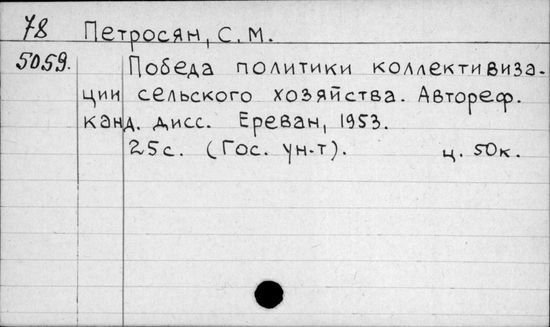 78 Петросян, С. М.
5059. Победа политики коллективиза-
ции сельского хозяйства. Автореф.
канд. дисс. Ереван, 1953.
25с. (Гос. ун-т). ц. 50к.